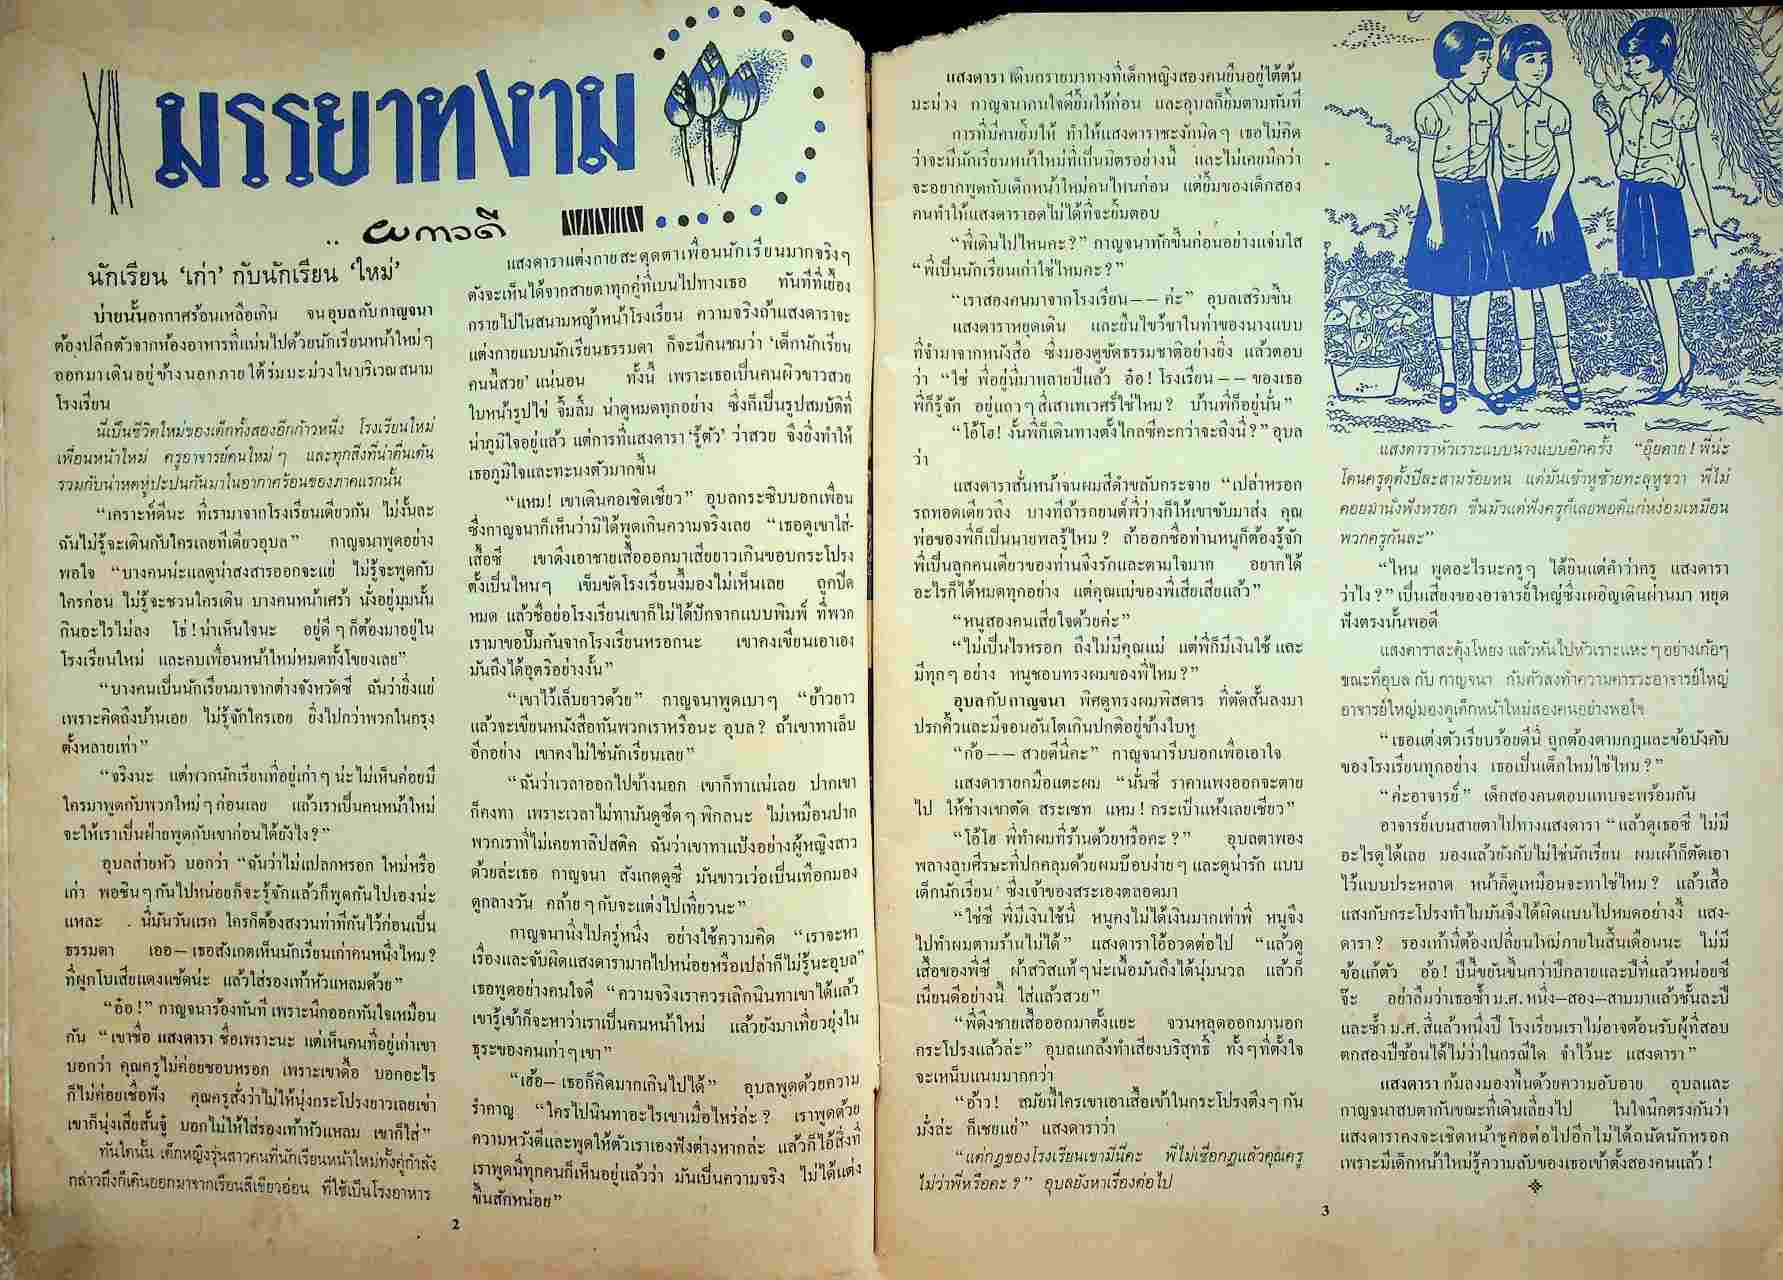 มรรยาทงาม
ผกาวดี
นักเรียน ‘เก่า’ กับนักเรียน ‘ใหม่’
บ่ายนั้นอากาศร้อนเหลือเกิน จนอุบลกับกาญจนา
ต้องปลีกตัวจากห้องอาหารที่แน่นไปด้วยนักเรียนหน้าใหม่ๆ
ออกมาเดินอยู่ข้างนอกภายใต้ร่มมะม่วงในบริเวณสนาม
โรงเรียน
นี่เป็นชีวิตใหม่ของเด็กทั้งสองอีกก้าวหนึ่ง โรงเรียนใหม่
เพื่อนหน้าใหม่ ครูอาจารย์คนใหม่ๆ และทุกสิ่งที่น่าตื่นเต้น
รวมกับน่าหดหู่ปะปนกันมาในอากาศร้อนของภาคแรกนั้น
“เคราะห์ดีนะ ที่เรามาจากโรงเรียนเดียวกัน ไม่งั้นละ
ฉันไม่รู้จะเดินกับใครเลยทีเดียวอุบล” กาญจนาพูดอย่าง
พอใจ “บางคนน่ะแลดูน่าสงสารออกจะแย่ ไม่รู้จะพูดกับ
ใครก่อน ไม่รู้จะชวนใครเดิน บางคนหน้าเศร้า นั่งอยู่มุมนั้น
กินอะไรไม่ลง โธ่! น่าเห็นใจนะ อยู่ดีๆก็ต้องมาอยู่ใน
โรงเรียนใหม่ และคบเพื่อนหน้าใหม่หมดทั้งโขยงเลย”
“บางคนเป็นนักเรียนมาจากต่างจังหวัดซี ฉันว่ายิ่งแย่
เพราะคิดถึงบ้านเอย ไม่รู้จักใครเอย ยิ่งไปกว่าพวกในกรุง
ตั้งหลายเท่า”
“จริงนะ แต่พวกนักเรียนที่อยู่เก่าๆ น่ะไม่เห็นค่อยมี
ใครมาพูดกับพวกใหม่ๆก่อนเลย แล้วเราเป็นคนหน้าใหม่
จะให้เราเป็นฝ่ายพูดกับเขาก่อนได้ยังไง?”
อุบลส่ายหัว บอกว่า “ฉันว่าไม่แปลกหรอก ใหม่หรือ
เก่า พอชินๆกันไปหน่อยก็จะรู้จักแล้วก็พูดกันไปเองน่ะ
แหละ . นี่มันวันแรก ใครก็ต้องสงวนท่าทีกันไว้ก่อนเป็น
ธรรมดา เออ—เธอสังเกตเห็นนักเรียนเก่าคนหนึ่งไหม?
ที่ผูกโบเสียแดงแช้ดน่ะ แล้วใส่รองเท้าหัวแหลมด้วย”
“อ๋อ!” กาญจนาร้องทันที เพราะนึกออกทันใจเหมือน
กัน “เขาชื่อ แสงดารา ชื่อเพราะนะ แต่เห็นคนที่อยู่เก่าเขา
บอกว่า คุณครูไม่ค่อยชอบหรอก เพราะเขาดื้อ บอกอะไร
ก็ไม่ค่อยเชื่อฟัง คุณครูสั่งว่าไม่ให้นุ่งกระโปรงยาวเลยเข่า
เขาก็นุ่งเสียสั้นจู๋ บอกไม่ให้ใส่รองเท้าหัวแหลม เขาก็ใส่”
ทันใดนั้น เด็กหญิงรุ่นสาวคนที่นักเรียนหน้าใหม่ทั้งคู่กำลัง
กล่าวถึงก็เดินออกมาจากเรือนสีเขียวอ่อน ที่ใช้เป็นโรงอาหาร
แสงดาราแต่งกายสะดุดตาเพื่อนนักเรียนมากจริงๆ
ดังจะเห็นได้จากสายตาทุกคู่ที่เบนไปทางเธอ ทันทีที่เยื้อง
กรายไปในสนามหญ้าหน้าโรงเรียน ความจริงถ้าแสงดาราจะ
แต่งกายแบบนักเรียนธรรมดา ก็จะมีคนชมว่า ‘เด็กนักเรียน
คนนี้สวย’ แน่นอน ทั้งนี้ เพราะเธอเป็นคนผิวขาวสวย
ใบหน้ารูปไข่ จิ้มลิ้ม น่าดูหมดทุกอย่าง ซึ่งก็เป็นรูปสมบัติที่
น่าภูมิใจอยู่แล้ว แต่การที่แสงดารา ‘รู้ตัว’ ว่าสวย จึงยิ่งทำให้
เธอภูมิใจและทะนงตัวมากขึ้น
“แหม! เขาเดินคอเชิดเชียว” อุบลกระซิบบอกเพื่อน
ซึ่งกาญจนาก็เห็นว่ามิได้พูดเกินความจริงเลย “เธอดูเขาใส่-
เสื้อซี เขาดึงเอาชายเสื้อออกมาเสียยาวเกินขอบกระโปรง
ตั้งเป็นไหนๆ เข็มขัดโรงเรียนงี้มองไม่เห็นเลย ถูกปิด
หมด แล้วชื่อย่อโรงเรียนเขาก็ไม่ได้ปักจากแบบพิมพ์ ที่พวก
เรามาขอปั๊มกันจากโรงเรียนหรอกนะ เขาคงเขียนเอาเอง
มันถึงได้อุตริอย่างงั้น”
“เขาไว้เล็บยาวด้วย” กาญจนาพูดเบาๆ “ย้าวยาว
แล้วจะเขียนหนังสือทันพวกเราหรือนะ อุบล? ถ้าเขาทาเล็บ
อีกอย่าง เขาคงไม่ใช่นักเรียนเลย”
“ฉันว่าเวลาออกไปข้างนอก เขาก็ทาแน่เลย ปากเขา
ก็คงทา เพราะเวลาไม่ทามันดูซีดๆพิกลนะ ไม่เหมือนปาก
พวกเราที่ไม่เคยทาลิปสติค ฉันว่าเขาทาแป้งอย่างผู้หญิงสาว
ด้วยล่ะเธอ กาญจนา สังเกตดูซี่ มันขาวเว่อเป็นเทือกมอง
ดูกลางวัน คล้ายๆกับจะแต่งไปเที่ยวนะ”
กาญจนานิ่งไปครู่หนึ่ง อย่างใช้ความคิด “เราจะหา
เรื่องและจับผิดแสงดารามากไปหน่อยหรือเปล่าก็ไม่รู้นะอุบล”
เธอพูดอย่างคนใจดี “ความจริงเราควรเลิกนินทาเขาได้แล้ว
เขารู้เข้าก็จะหาว่าเราเป็นคนหน้าใหม่ แล้วยังมาเที่ยวยุ่งใน
ธุระของคนเก่าๆเขา”
“เฮ้อ— เธอก็คิดมากเกินไปได้” อุบลพูดด้วยความ
รำคาญ “ใครไปนินทาอะไรเขาเมื่อไหร่ล่ะ? เราพูดด้วย
ความหวังดีและพูดให้ตัวเราเองฟังต่างหากล่ะ แล้วก็ไอ้สิ่งที่
เราพูดนี่ทุกคนก็เห็นอยู่แล้วว่า มันเป็นความจริง ไม่ได้แต่ง
ขึ้นสักหน่อย”
2
แสงดารา เดินกรายมาทางที่เด็กหญิงสองคนยืนอยู่ใต้ต้น
มะม่วง กาญจนาคนใจดียิ้มให้ก่อน และอุบลก็ยิ้มตามทันที
การที่มีคนยิ้มให้ ทำให้แสงดาราชะงักนิดๆ เธอไม่คิด
ว่าจะมีนักเรียนหน้าใหม่ที่เป็นมิตรอย่างนี้ และไม่เคยนึกว่า
จะอยากพูดกับเด็กหน้าใหม่คนไหนก่อน แต่ยิ้มของเด็กสอง
คนทำให้แสงดาราอดไม่ได้ที่จะยิ้มตอบ
“พี่เดินไปไหนคะ?” กาญจนาทักขึ้นก่อนอย่างแจ่มใส
“พี่เป็นนักเรียนเก่าใช่ไหมคะ?”
“เราสองคนมาจากโรงเรียน—— ค่ะ” อุบลเสริมขึ้น
แสงดาราหยุดเดิน และยืนไขว้ขาในท่าของนางแบบ
ที่จำมาจากหนังสือ ซึ่งมองดูขัดธรรมชาติอย่างยิ่ง แล้วตอบ
ว่า “ใช่ พี่อยู่นี่มาหลายปีแล้ว อ๋อ! โรงเรียน—— ของเธอ
พี่ก็รู้จัก อยู่แถวๆสี่เสาเทเวศร์ใช่ไหม? บ้านพี่ก็อยู่นั่น”
“โอ้โฮ! งั้นพี่ก็เดินทางตั้งไกลซีคะกว่าจะถึงนี่?” อุบล
ว่า
แสงดาราสั่นหน้าจนผมสีดำขลับกระจาย “เปล่าหรอก
รถทอดเดียวถึง บางทีถ้ารถยนต์พี่ว่างก็ให้เขาขับมาส่ง คุณ
พ่อของพี่ก็เป็นนายพลรู้ไหม? ถ้าออกชื่อท่านหนูก็ต้องรู้จัก
พี่เป็นลูกคนเดียวของท่านจึงรักและตามใจมาก อยากได้
อะไรก็ได้หมดทุกอย่าง แต่คุณแม่ของพี่เสียเสียแล้ว”
“หนูสองคนเสียใจด้วยค่ะ”
“ไม่เป็นไรหรอก ถึงไม่มีคุณแม่ แต่พี่ก็มีเงินใช้ และ
มีทุกๆอย่าง หนูชอบทรงผมของพี่ไหม?”
อุบลกับกาญจนา พิศดูทรงผมพิสดาร ที่ตัดสั้นลงมา
ปรกคิ้วและมีจอนอันโตเกินปกติอยู่ข้างใบหู
“ก้อ—— สวยดีนี่คะ” กาญจนารีบบอกเพื่อเอาใจ
แสงดารายกมือแตะผม “นั่นซี ราคาแพงออกจะตาย
ไป ให้ช่างเขาตัด สระเซท แหม! กระเป๋าแห้งเลยเชียว”
“โอ้โฮ พี่ทำผมที่ร้านด้วยหรือคะ?” อุบลตาพอง
พลางลูบศีรษะที่ปกคลุมด้วยผมบ๊อบง่ายๆ และดูน่ารัก แบบ
เด็กนักเรียน ซึ่งเจ้าของสระเองตลอดมา
“ใช่ซี พี่มีเงินใช้นี่ หนูคงไม่ได้เงินมากเท่าพี่ หนูจึง
ไปทำผมตามร้านไม่ได้” แสงดาราโอ้อวดต่อไป “แล้วดู
เสื้อของพี่ซี ผ้าสวิสแท้ๆน่ะเนื้อมันถึงได้นุ่มนวล แล้วก็
เนียนดีอย่างนี้ ใส่แล้วสวย”
“พี่ดึงชายเสื้อออกมาตั้งแยะ จวนหลุดออกมานอก
กระโปรงแล้วล่ะ” อุบลแกล้งทำเสียงบริสุทธิ์ ทั้งๆที่ตั้งใจ
จะเหน็บแนมมากกว่า
“อ้าว! สมัยนี้ใครเขาเอาเสื้อเข้าในกระโปรงตึงๆกัน
มั่งล่ะ ก็เชยแย่” แสงดาราว่า
“แต่กฎของโรงเรียนเขามีนี่คะ พี่ไม่เชื่อกฎแล้วคุณครู
ไม่ว่าพี่หรือคะ?” อุบลยังหาเรื่องต่อไป
แสงดาราหัวเราะแบบนางแบบอีกครั้ง “อุ๊ยตาย! พี่น่ะ
โดนครูดุตั้งปีละสามร้อยหน แต่มันเข้าหูซ้ายทะลุหูขวา พี่ไม่
คอยมานั่งฟังหรอก ขืนมัวแต่ฟังครูก็เลยพอดีแก่หง่อมเหมือน
พวกครูกันละ”
“ไหน พูดอะไรนะครูๆ ได้ยินแต่คำว่าครู แสงดารา
ว่าไง?” เป็นเสียงของอาจารย์ใหญ่ซึ่งเผอิญเดินผ่านมา หยุด
ฟังตรงนั้นพอดี
แสงดาราสะดุ้งโหยง แล้วหันไปหัวเราะแหะๆอย่างเก้อๆ
ขณะที่อุบล กับ กาญจนา ก้มตัวลงทำความคารวะอาจารย์ใหญ่
อาจารย์ใหญ่มองดูเด็กหน้าใหม่สองคนอย่างพอใจ
“เธอแต่งตัวเรียบร้อยดีนี่ ถูกต้องตามกฎและข้อบังคับ
ของโรงเรียนทุกอย่าง เธอเป็นเด็กใหม่ใช่ไหม?”
“ค่ะอาจารย์” เด็กสองคนตอบแทบจะพร้อมกัน
อาจารย์เบนสายตาไปทางแสงดารา “แล้วดูเธอซี ไม่มี
อะไรดูได้เลย มองแล้วยังกับไม่ใช่นักเรียน ผมเผ้าก็ตัดเอา
ไว้แบบประหลาด หน้าก็ดูเหมือนจะทาใช่ไหม? แล้วเสื้อ
แสงกับกระโปรงทำไมมันจึงได้ผิดแบบไปหมดอย่างงี้ แสง-
ดารา? รองเท้านี่ต้องเปลี่ยนใหม่ภายในสิ้นเดือนนะ ไม่มี
ข้อแก้ตัว อ้อ! ปีนี้ขยันขึ้นกว่าปีกลายและปีที่แล้วหน่อยซี
จ๊ะ อย่าลืมว่าเธอซ้ำ ม.ศ. หนึ่ง—สอง—สามมาแล้วชั้นละปี
และซ้ำ ม.ศ. สี่แล้วหนึ่งปี โรงเรียนเราไม่อาจต้อนรับผู้ที่สอบ
ตกสองปีซ้อนได้ไม่ว่าในกรณีใด จำไว้นะ แสงดารา”
แสงดารา ก้มลงมองพื้นด้วยความอับอาย อุบลและ
กาญจนาสบตากันขณะที่เดินเลี่ยงไป ในใจนึกตรงกันว่า
แสงดาราคงจะเชิดหน้าชูคอต่อไปอีกไม่ได้ถนัดนักหรอก
เพราะมีเด็กหน้าใหม่รู้ความลับของเธอเข้าตั้งสองคนแล้ว!
3